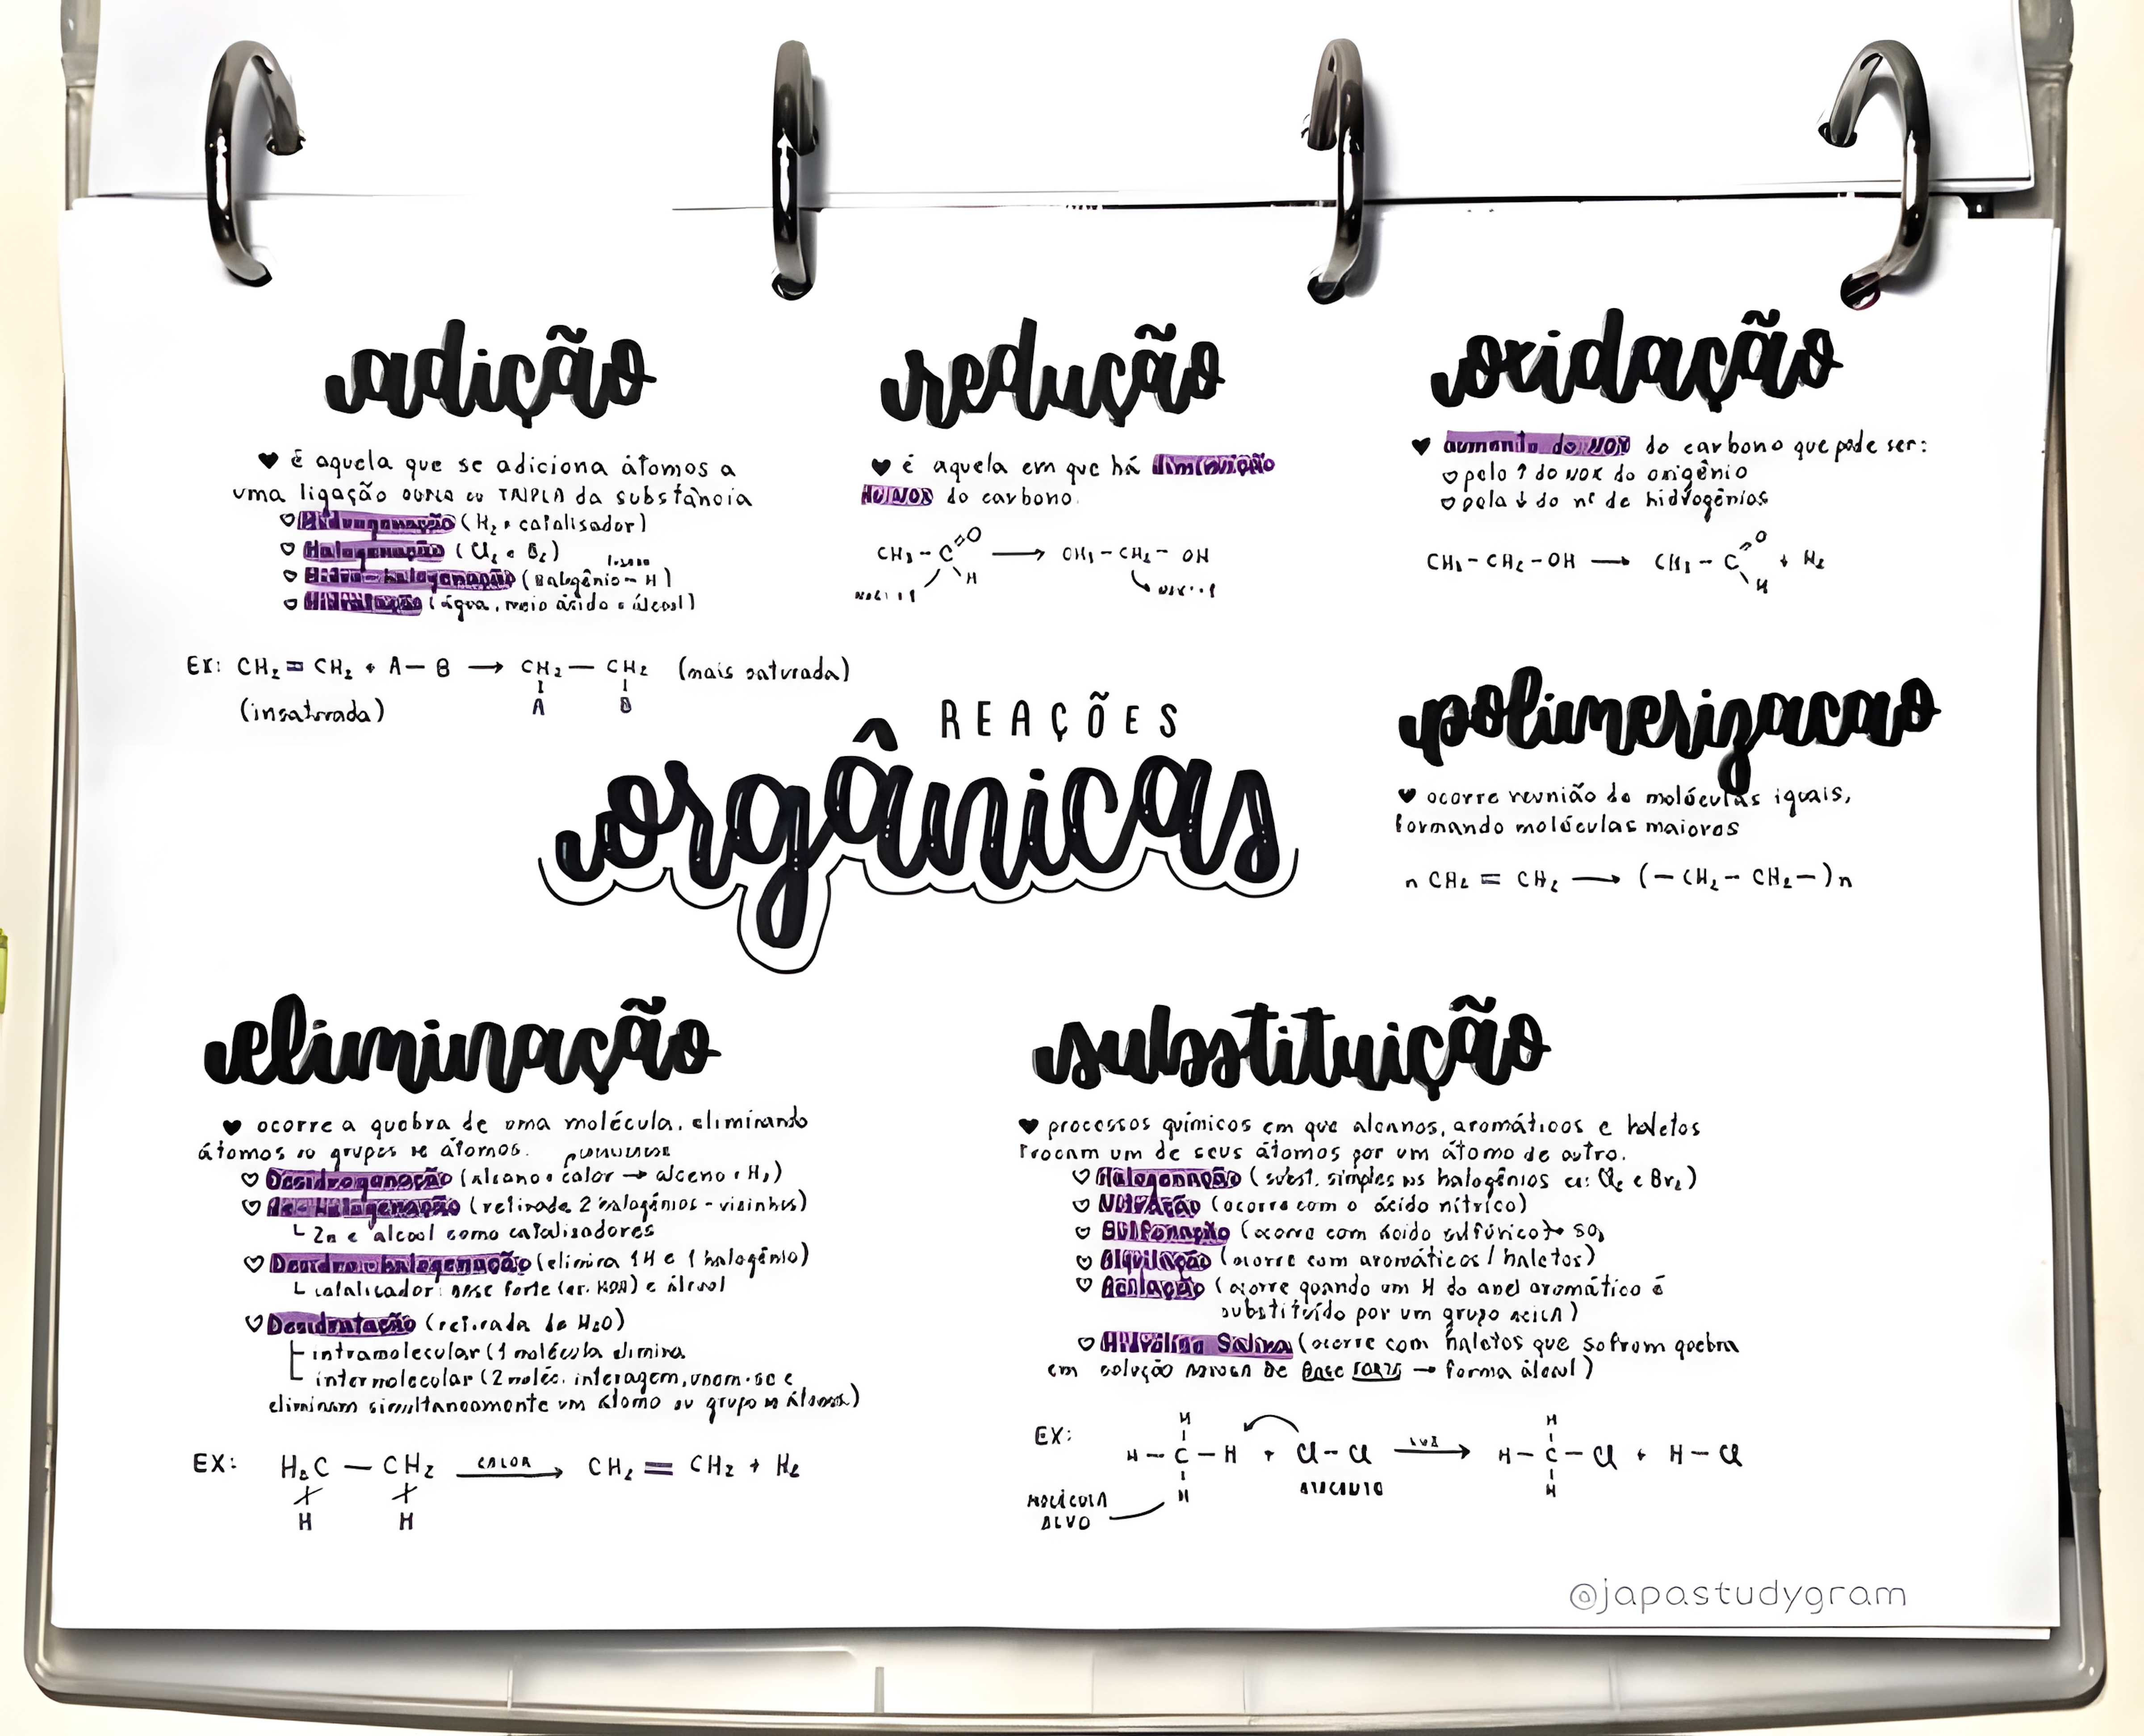 adição
é aquela que se adiciona átomos a
uma ligação DUPLA ou TRIPLA da substância
Hidrogenação (H₂ e catalisador)
Halogenação (Cl₂ e Br₂)
Hidro-halogenação (halogênio - H)
Hidratação (água, meio ácido e álcool)
Ex: CH₂ = CH₂ + A — B → CH₂ — CH₂ (mais saturada)
A B
(insaturada)
redução
é aquela em que há diminuição
do NOX do carbono
CH₃ - C =O → CH₃ - CH₂ - OH
H
oxidação
aumento do NOX do carbono que pode ser:
pelo ↑ do NOX do oxigênio
pela ↓ do nº de hidrogênios
CH₃ - CH₂ - OH → CH₃ - C =O + H₂
H
REAÇÕES
orgânicas
polimerizacao
ocorre reunião de moléculas iguais,
formando moléculas maiores
n CH₂ = CH₂ → (- CH₂ - CH₂ -)n
eliminação
ocorre a quebra de uma molécula, eliminando
átomos ou grupos de átomos.
Desidrogenação (alcano + calor → alceno + H₂)
De-Halogenação (retirada 2 halogênios - vizinhos)
Zn e álcool como catalisadores
Desidro-halogenação (elimina 1H e 1 halogênio)
catalisador: base forte (ex. KOH) e álcool
Desidratação (retirada de H₂O)
intramolecular (1 molécula elimina
intermolecular (2 moléc. interagem, unem-se e
eliminam simultaneamente um átomo ou grupo de átomos)
EX: H₂C — CH₂ CALOR → CH₂ = CH₂ + H₂
H H
substituição
processos químicos em que alcanos, aromáticos e haletos
trocam um de seus átomos por um átomo de outro.
Halogenação (subst. simples os halogênios ex: Cl₂ e Br₂)
Nitração (ocorre com o ácido nítrico)
Sulfonação (ocorre com ácido sulfúrico) → SO₃
Alquilação (ocorre com aromáticos / haletos)
Acilação (ocorre quando um H do anel aromático é
substituído por um grupo acila)
Hidrólise Salina (ocorre com haletos que sofrem quebra
em solução aquosa de base forte → forma álcool)
EX:
H H
H - C - H + Cl - Cl LUZ → H - C - Cl + H - Cl
H H
MOLÉCULA
ALVO
@japastudygram